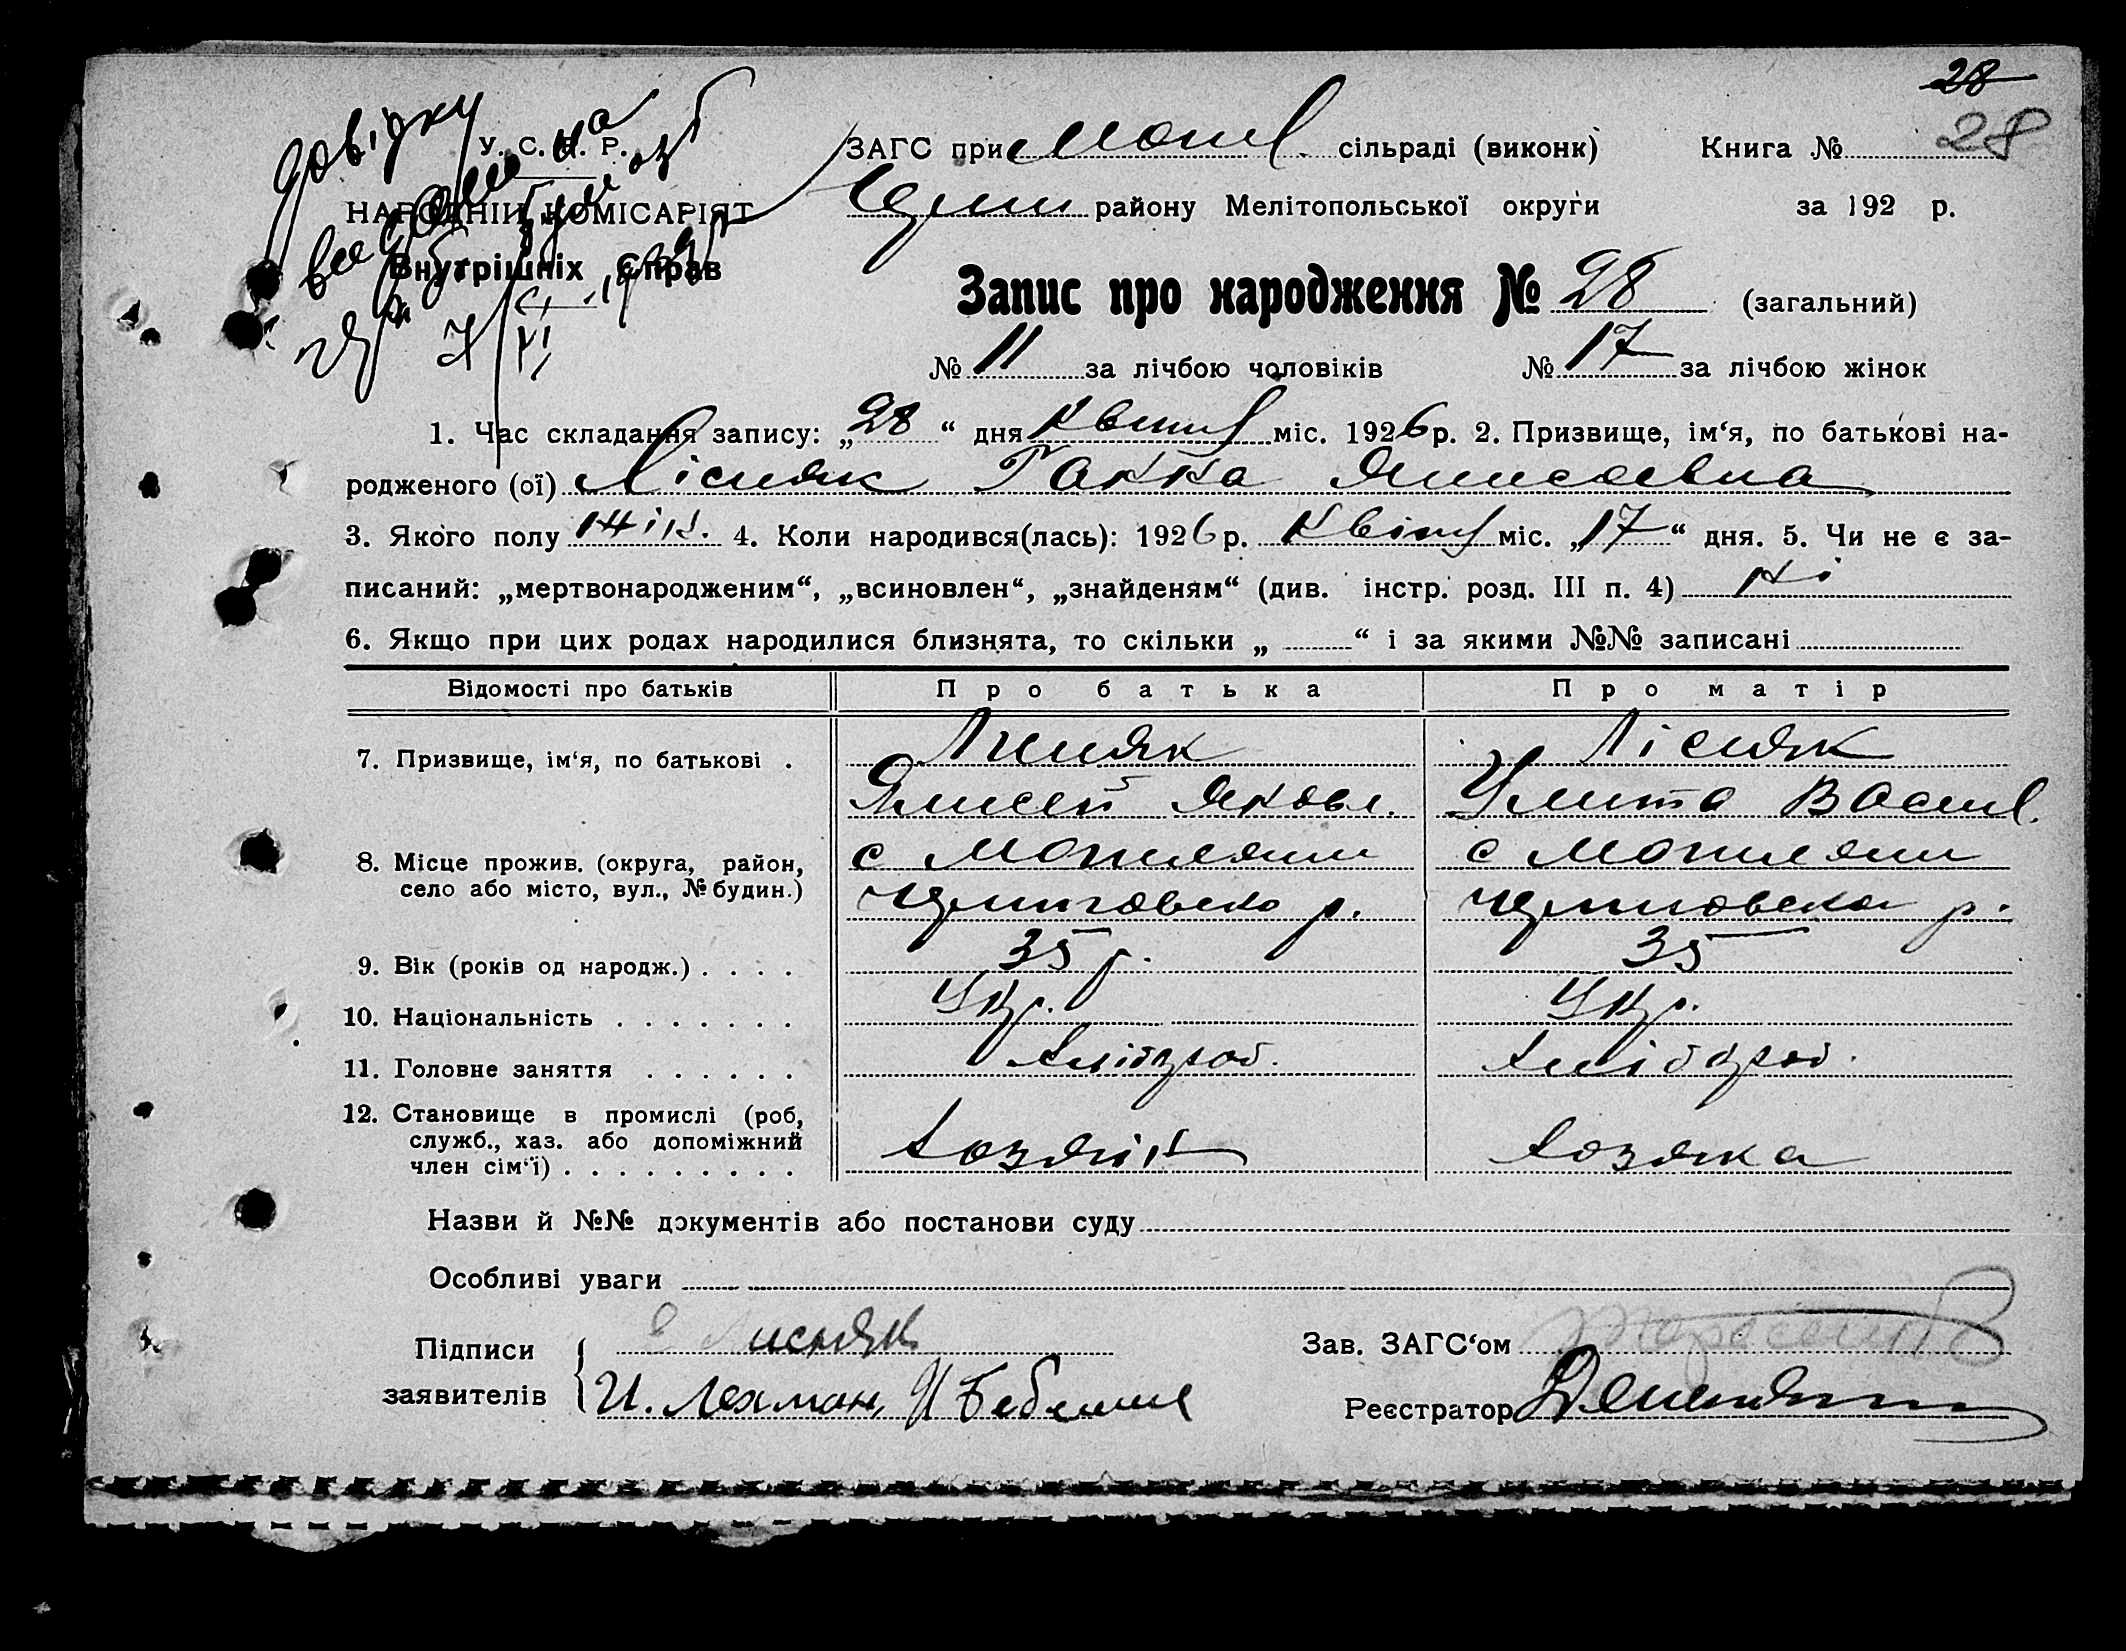 28
У. С. Р. Р.
ЗАГС при Могил сільраді (виконк) Книга № 28
НАРОДНІЙ КОМІСАРІЯТ
району Мелітопольської округи за 192 р.
Внутрішніх Справ
довідку
Запис про народження № 28 (загальний)
№ 11 за лічбою чоловіків № 17 за лічбою жінок
1. Час складання запису: „28“ дня Квітн міс. 1926 р. 2. Призвище, ім‘я, по батькові на-
родженого (ої) Лісняк Ганна
3. Якого полу жін. 4. Коли народився(лась): 1926 р. Квітн міс. „17“ дня. 5. Чи не є за-
писаний: „мертвонародженим“, „всиновлен“, „знайденям“ (див. інстр. розд. III п. 4) Ні
6. Якщо при цих родах народилися близнята, то скільки „ “ і за якими №№ записані
Відомості про батьків Про батька Про матір
7. Призвище, ім‘я, по батькові . Лисняк Лісняк
Яковл. Улита Васил.
8. Місце прожив. (округа, район, с с
село або місто, вул., № будин.) р. р.
9. Вік (років од народж.) . . . . 35 р. 35
10. Національність . . . . . . . Укр. Укр.
11. Головне заняття . . . . . . Хлібороб. Хлібороб.
12. Становище в промислі (роб,
служб., хаз. або допоміжний Хозяін Хозяка
член сім‘ї) . . . . . . . . .
Назви й №№ документів або постанови суду
Особливі уваги
Підписи Лисняк Зав. ЗАГС‘ом
заявителів И. Лехман, Реєстратор